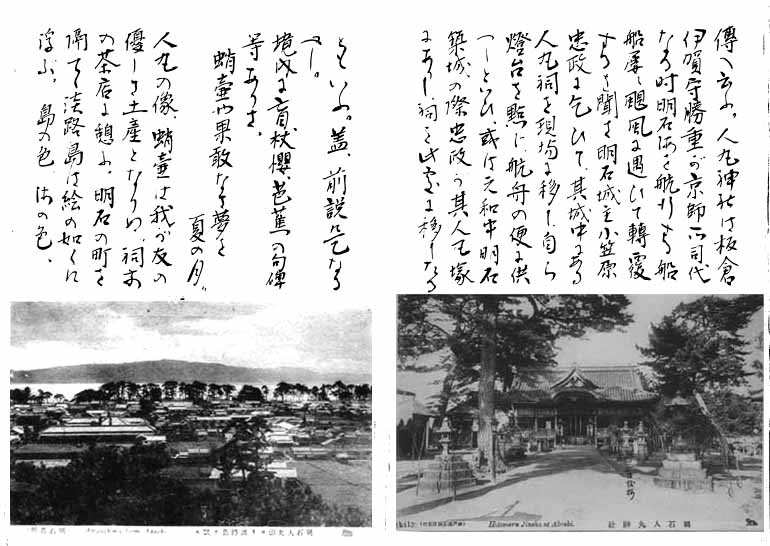 傳へ云ふ。人丸神社は板倉
伊賀守勝重が京師所司代
なる時明石海を航行する船
船屡々颶風に遇ひて轉覆
するを聞き明石城主小笠原
忠政に乞ひて、其城中にある
人丸祠を現場に移し自ら
燈台を點じ航舟の便に供
せしといひ、或は元和中明石
築城の際忠政が其人丸塚
にありし祠を此處に移したる
ともいふ。蓋、前説是なる
べし。
境内に盲杖櫻、芭蕉の句碑
等あり。
蛸壷や果敢なき夢を
夏の月。
人丸の像、蛸壷は我が友の
優しき土産となりぬ。祠前
の茶店に憩ふ。明石の町を
隔てゝ淡路島は絵の如くに
浮ぶ。島の色、海の色、
明石人丸神社
Hitomaru Jinsha at Akashi.
盲杖櫻